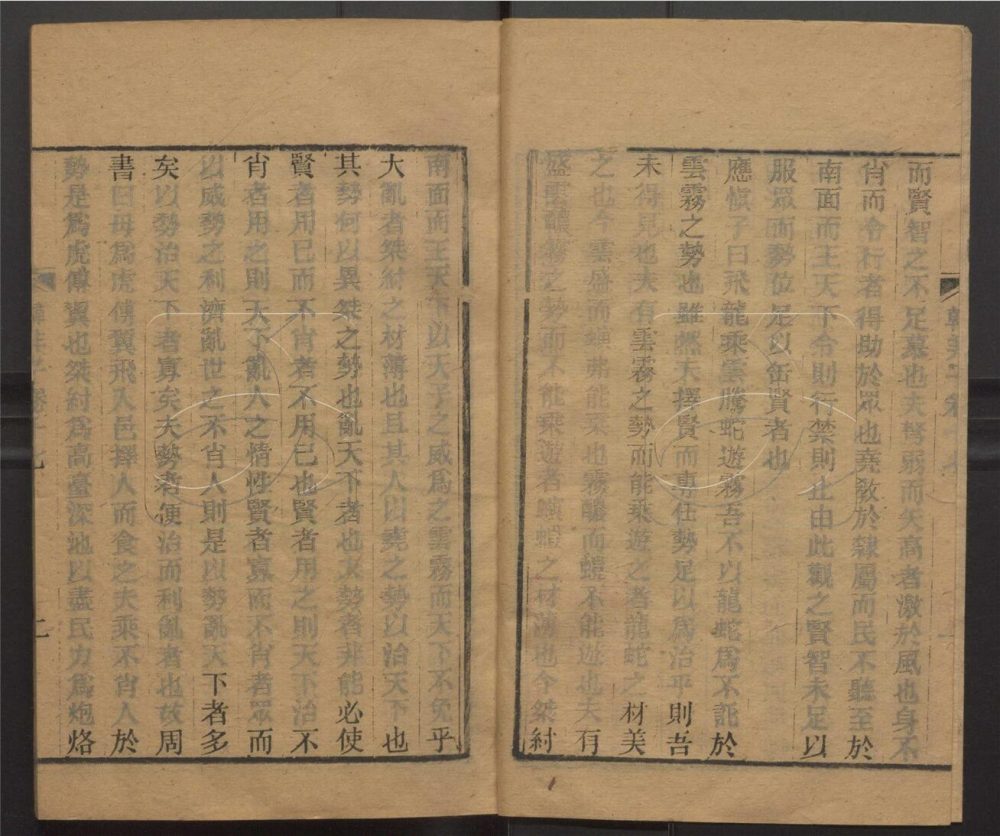 而賢智之不足慕也夫弩弱而矢高者激於風也身不
肖而令行者得助於眾也堯敎於隸屬而民不聽至於
南面而王天下令則行禁則止由此觀之賢智未足以
服眾而勢位足以缶賢者也
應愼子曰飛龍乘雲騰蛇遊霧吾不以龍蛇爲不託於
雲霧之勢也雖然夫擇賢而專任勢足以爲治乎則吾
未得見也夫有雲霧之勢而能乘遊之者龍蛇之材美
之也今雲盛而螾弗能乘也霧醲而螘不能遊也夫有
盛雲醲霧之勢而不能乘遊者螾螘之材薄也今桀紂
南面而王天下以天子之威爲之雲霧而天下不免乎
大亂者桀紂之材薄也且其人以堯之勢以治天下也
其勢何以異桀之勢也亂天下者也夫勢者非能必使
賢者用已而不肖者不用已也賢者用之則天下治不
肖者用之則天下亂人之情性賢者寡而不肖者眾而
以威勢之利濟亂世之不肖人則是以勢亂天下者多
矣以勢治天下者寡矣夫勢者便治而利亂者也故周
書曰毋爲虎傅翼飛入邑擇人而食之夫乘不肖人於
勢是爲虎傅翼也桀紂爲高臺深池以盡民力爲炮烙